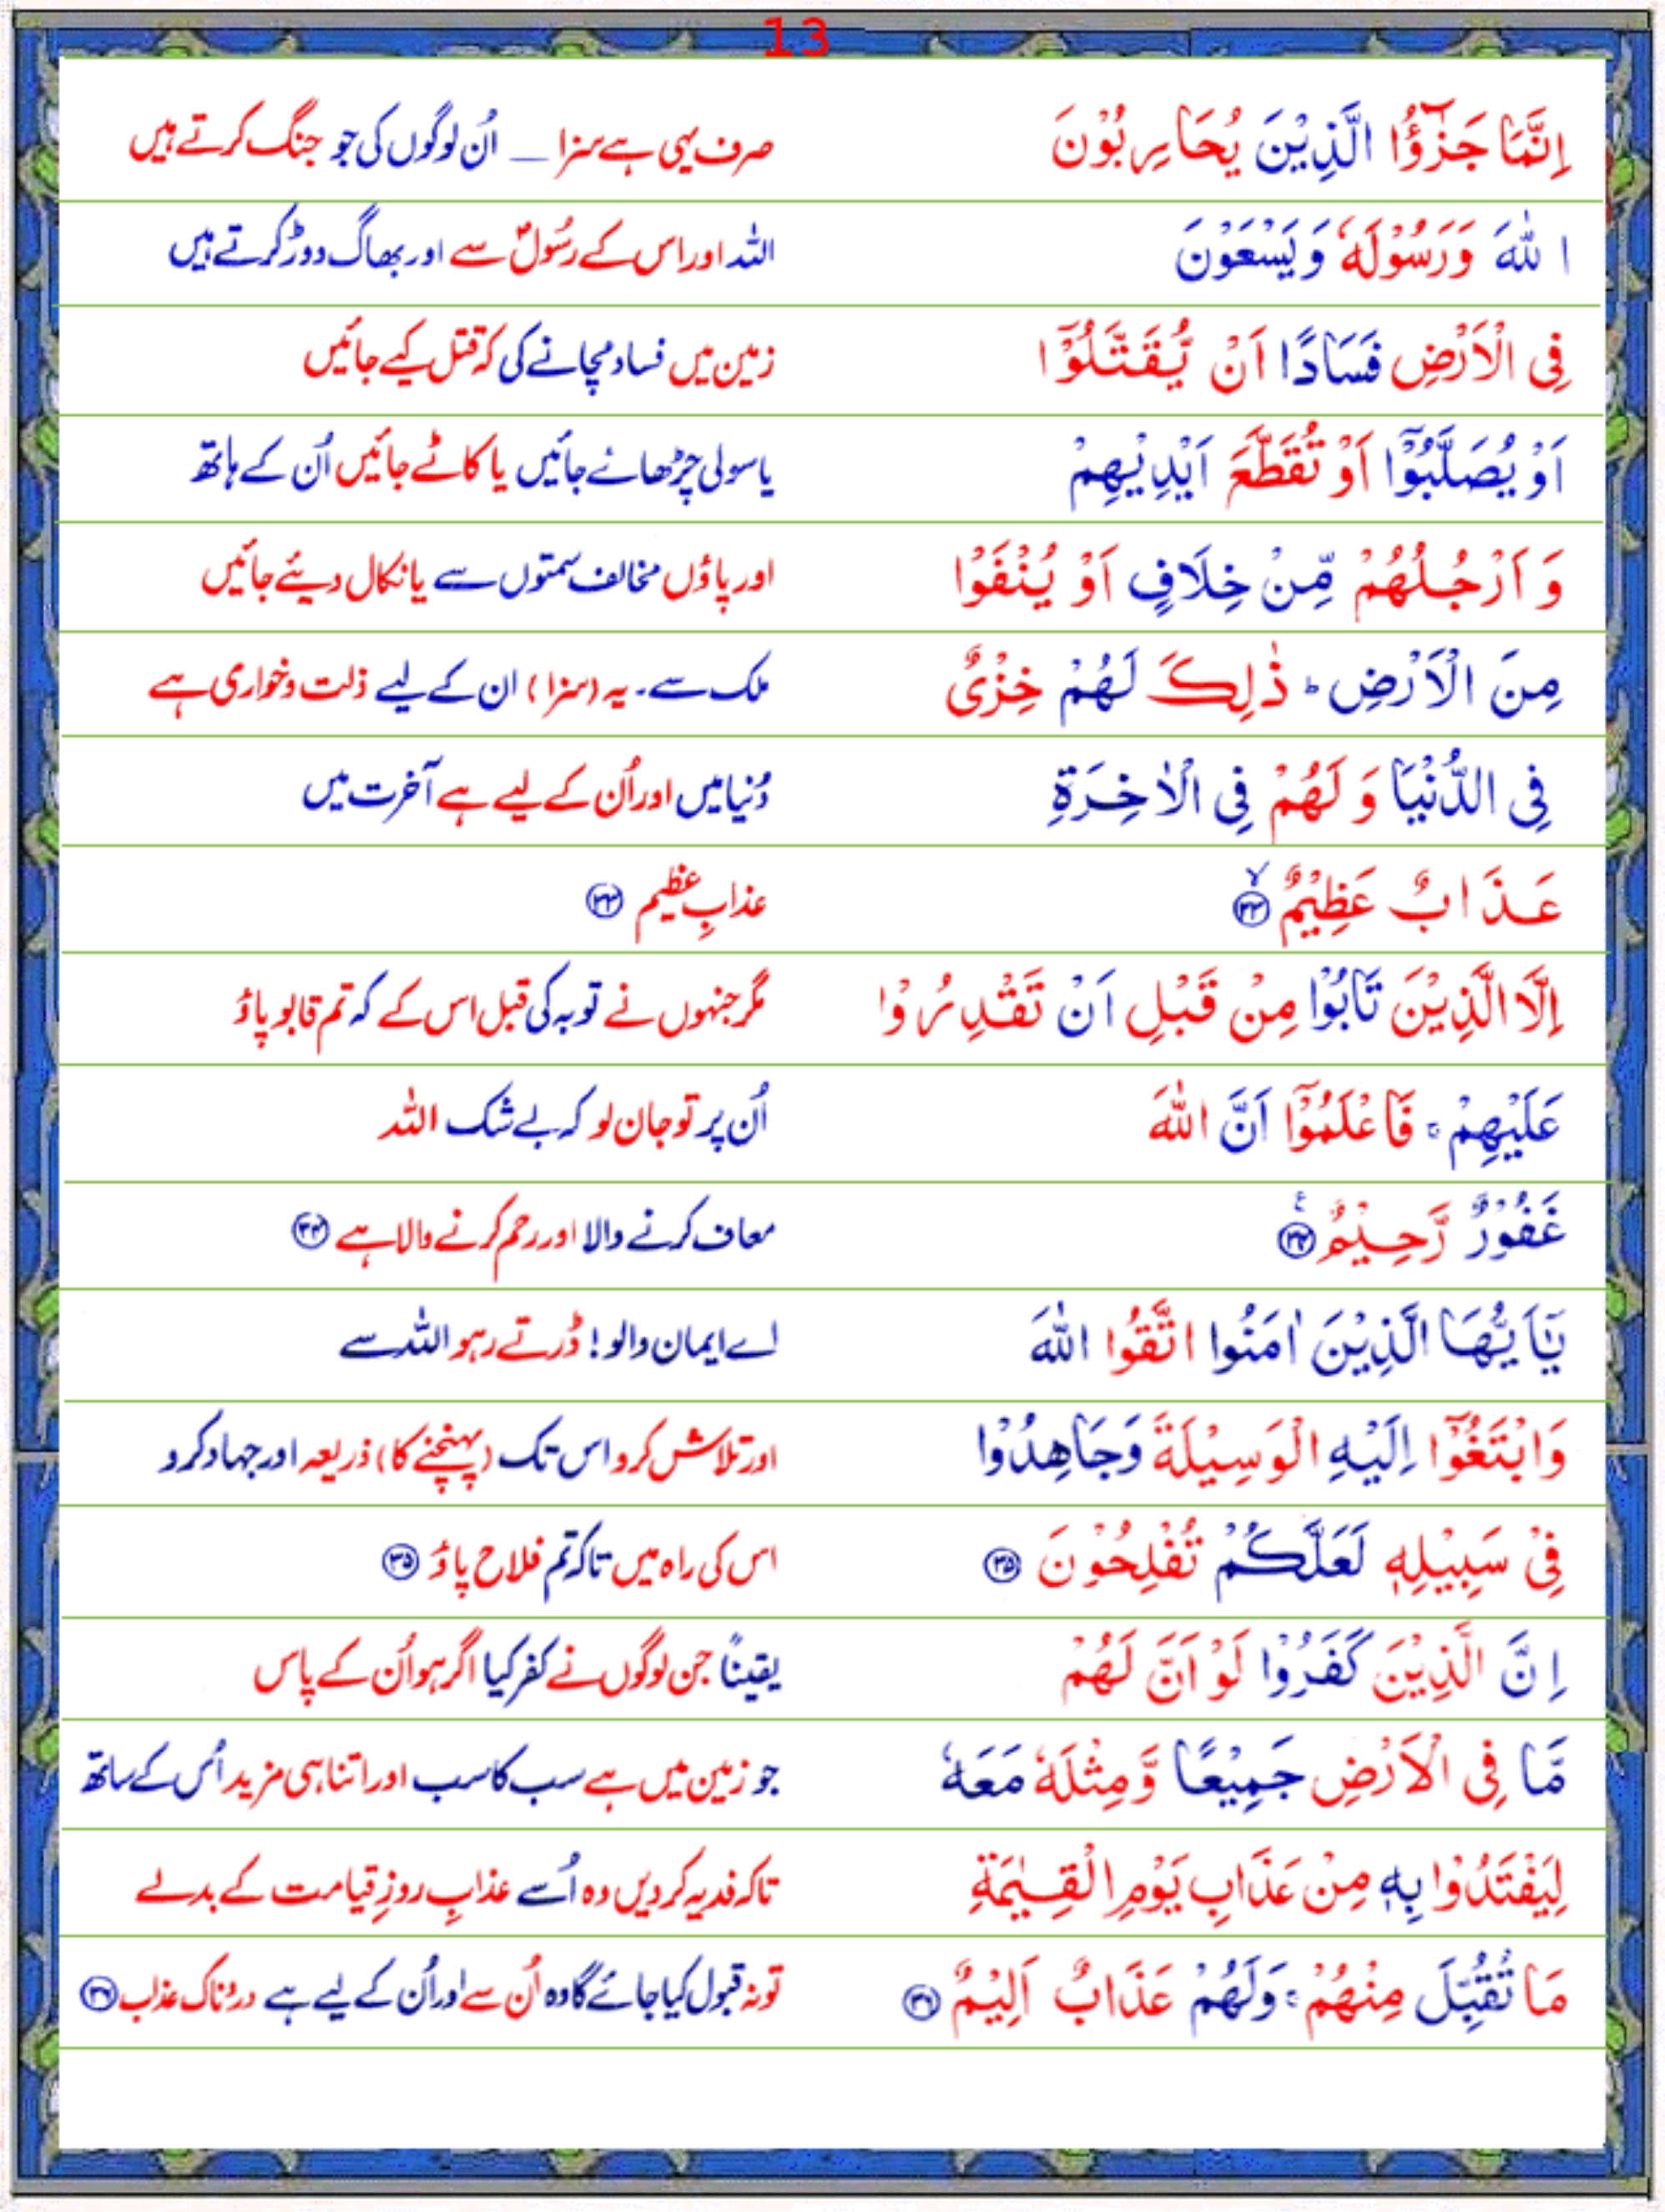 13
اِنَّمَا جَزٰٓؤُا الَّذِيْنَ يُحَارِبُوْنَ صرف یہی ہے سزا — اُن لوگوں کی جو جنگ کرتے ہیں
اللّٰهَ وَرَسُوْلَهٗ وَيَسْعَوْنَ اللہ اور اس کے رسُولؐ سے اور بھاگ دوڑ کرتے ہیں
فِى الْاَرْضِ فَسَادًا اَنْ يُّقَتَّلُوْٓا زمین میں فساد مچانے کی کہ قتل کیے جائیں
اَوْ يُصَلَّبُوْٓا اَوْ تُقَطَّعَ اَيْدِيْهِمْ یا سولی چڑھائے جائیں یا کاٹے جائیں اُن کے ہاتھ
وَ اَرْجُلُهُمْ مِّنْ خِلَافٍ اَوْ يُنْفَوْا اور پاؤں مخالف سمتوں سے یا نکال دیئے جائیں
مِنَ الْاَرْضِ ؕ ذٰلِكَ لَهُمْ خِزْىٌ ملک سے۔ یہ (سزا) ان کے لیے ذلت و خواری ہے
فِى الدُّنْيَا وَ لَهُمْ فِى الْاٰخِرَةِ دُنیا میں اور اُن کے لیے ہے آخرت میں
عَذَابٌ عَظِيْمٌ ۙ ﴿۳۳﴾ عذابِ عظیم ﴿۳۳﴾
اِلَّا الَّذِيْنَ تَابُوْا مِنْ قَبْلِ اَنْ تَقْدِرُوْا مگر جنہوں نے توبہ کی قبل اس کے کہ تم قابو پاؤ
عَلَيْهِمْ ۚ فَاعْلَمُوْٓا اَنَّ اللّٰهَ اُن پر تو جان لو کہ بے شک اللہ
غَفُوْرٌ رَّحِيْمٌ ﴿۳۴﴾ ع معاف کرنے والا اور رحم کرنے والا ہے ﴿۳۴﴾
يٰٓاَيُّهَا الَّذِيْنَ اٰمَنُوا اتَّقُوا اللّٰهَ اے ایمان والو! ڈرتے رہو اللہ سے
وَابْتَغُوْٓا اِلَيْهِ الْوَسِيْلَةَ وَجَاهِدُوْا اور تلاش کرو اس تک (پہنچنے کا) ذریعہ اور جہاد کرو
فِىْ سَبِيْلِهٖ لَعَلَّكُمْ تُفْلِحُوْنَ ﴿۳۵﴾ اس کی راہ میں تاکہ تم فلاح پاؤ ﴿۳۵﴾
اِنَّ الَّذِيْنَ كَفَرُوْا لَوْ اَنَّ لَهُمْ یقیناً جن لوگوں نے کفر کیا اگر ہو اُن کے پاس
مَّا فِى الْاَرْضِ جَمِيْعًا وَّمِثْلَهٗ مَعَهٗ جو زمین میں ہے سب کا سب اور اتنا ہی مزید اُس کے ساتھ
لِيَفْتَدُوْا بِهٖ مِنْ عَذَابِ يَوْمِ الْقِيٰمَةِ تاکہ فدیہ کردیں وہ اُسے عذابِ روزِ قیامت کے بدلے
مَا تُقُبِّلَ مِنْهُمْ ۚ وَلَهُمْ عَذَابٌ اَلِيْمٌ ﴿۳۶﴾ تو نہ قبول کیا جائے گا وہ اُن سے اور اُن کے لیے ہے دردناک عذاب ﴿۳۶﴾